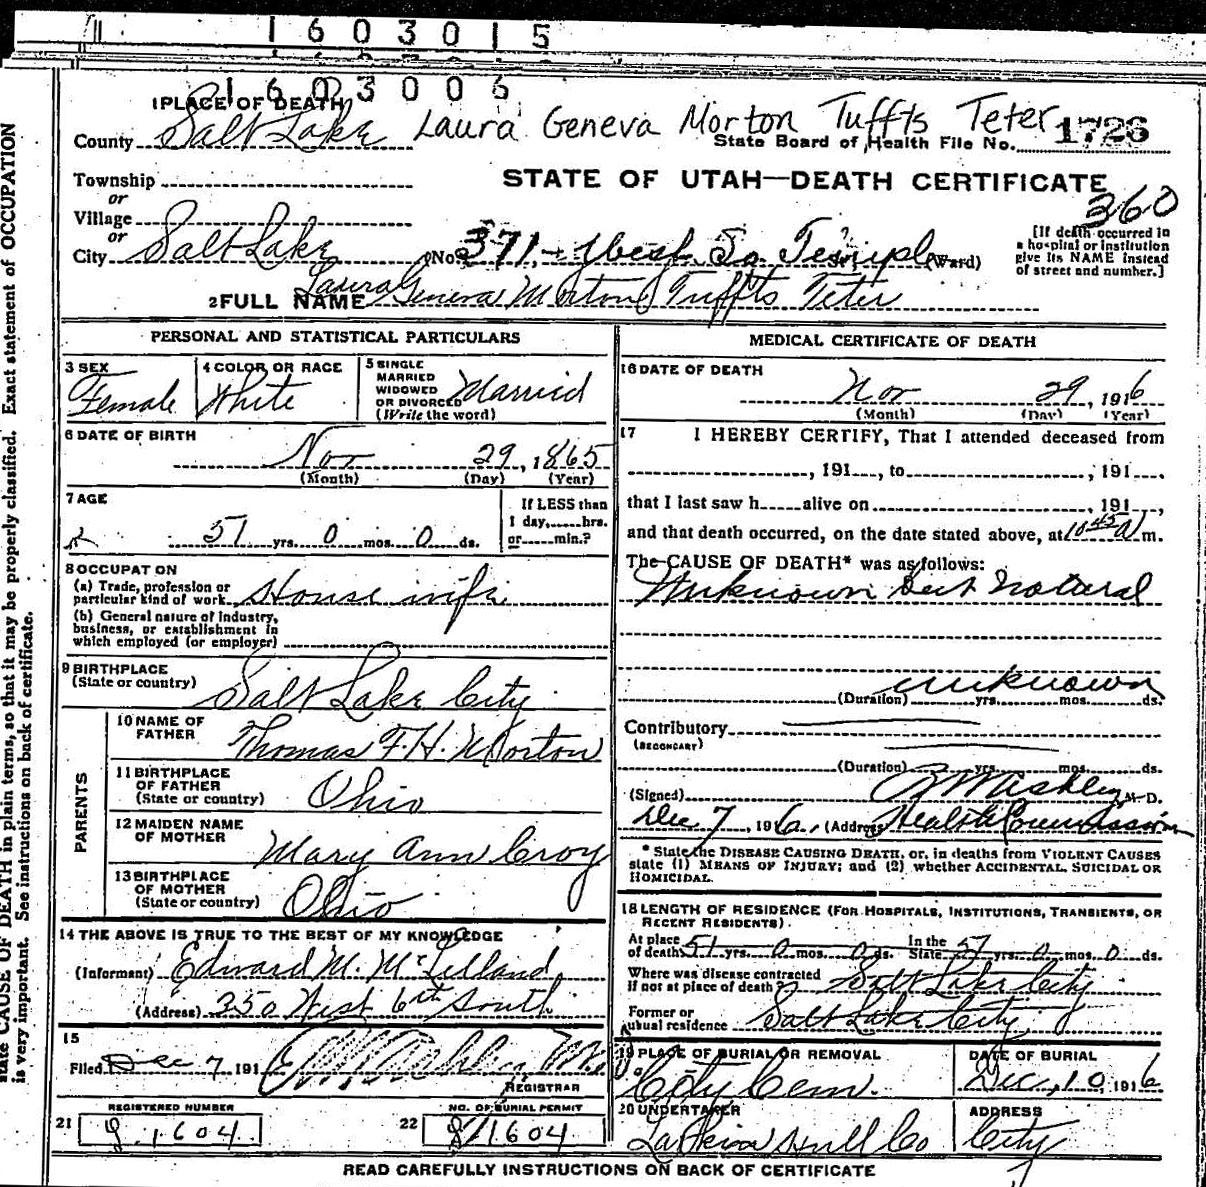 1 6 0 3 0 1 5
1 6 0 3 0 0 6
1 PLACE OF DEATH
Laura Geneva Morton Tuffts Teter
County Salt Lake
State Board of Health File No. 1726
Township
STATE OF UTAH—DEATH CERTIFICATE
or
360
Village
or
City Salt Lake No. 371 - West So Temple (Ward)
[If death occurred in
a hospital or institution
give its NAME instead
of street and number.]
2 FULL NAME Laura Geneva Morton Tuffts Teter
PERSONAL AND STATISTICAL PARTICULARS
3 SEX
Female
4 COLOR OR RACE
White
5 SINGLE
MARRIED
WIDOWED
OR DIVORCED
(Write the word)
Married
6 DATE OF BIRTH
Nov 29, 1865
(Month) (Day) (Year)
7 AGE
51 yrs. 0 mos. 0 ds.
If LESS than
1 day, hrs.
or min.?
8 OCCUPAT ON
(a) Trade, profession or
particular kind of work House wife
(b) General nature of industry,
business, or establishment in
which employed (or employer)
9 BIRTHPLACE
(State or country)
Salt Lake City
PARENTS
10 NAME OF
FATHER
Thomas F. H. Morton
11 BIRTHPLACE
OF FATHER
(State or country)
Ohio
12 MAIDEN NAME
OF MOTHER
Mary Ann Croy
13 BIRTHPLACE
OF MOTHER
(State or country)
Ohio
14 THE ABOVE IS TRUE TO THE BEST OF MY KNOWLEDGE
(Informant) Edward M. McLelland
(Address) 350 West 6th South
15
Filed Dec 7 191
REGISTRAR
REGISTERED NUMBER
21 1604
NO. OF BURIAL PERMIT
22 1604
MEDICAL CERTIFICATE OF DEATH
16 DATE OF DEATH
Nov 29, 1916
(Month) (Day) (Year)
17 I HEREBY CERTIFY, That I attended deceased from
, 191 , to , 191 .
that I last saw h alive on , 191 ,
and that death occurred, on the date stated above, at 10 45 A m.
The CAUSE OF DEATH* was as follows:
Unknown but natural
unknown
(Duration) yrs. mos. ds.
Contributory
(SECONDARY)
(Duration) yrs. mos. ds.
(Signed) M.D.
Dec 7, 1916, (Address) Health Commission
* State the DISEASE CAUSING DEATH, or, in deaths from VIOLENT CAUSES
state (1) MEANS OF INJURY; and (2) whether ACCIDENTAL, SUICIDAL OR
HOMICIDAL.
18 LENGTH OF RESIDENCE (FOR HOSPITALS, INSTITUTIONS, TRANSIENTS, OR
RECENT RESIDENTS).
At place
of death 51 yrs. 0 mos. 0 ds. In the
State 51 yrs. 0 mos. 0 ds.
Where was disease contracted
If not at place of death? Salt Lake City
Former or
usual residence Salt Lake City
19 PLACE OF BURIAL OR REMOVAL
City Cem.
DATE OF BURIAL
Dec, 10, 1916
20 UNDERTAKER
Larkin Hull Co
ADDRESS
City
READ CAREFULLY INSTRUCTIONS ON BACK OF CERTIFICATE
state CAUSE OF DEATH in plain terms, so that it may be properly classified. Exact statement of OCCUPATION
is very important. See instructions on back of certificate.